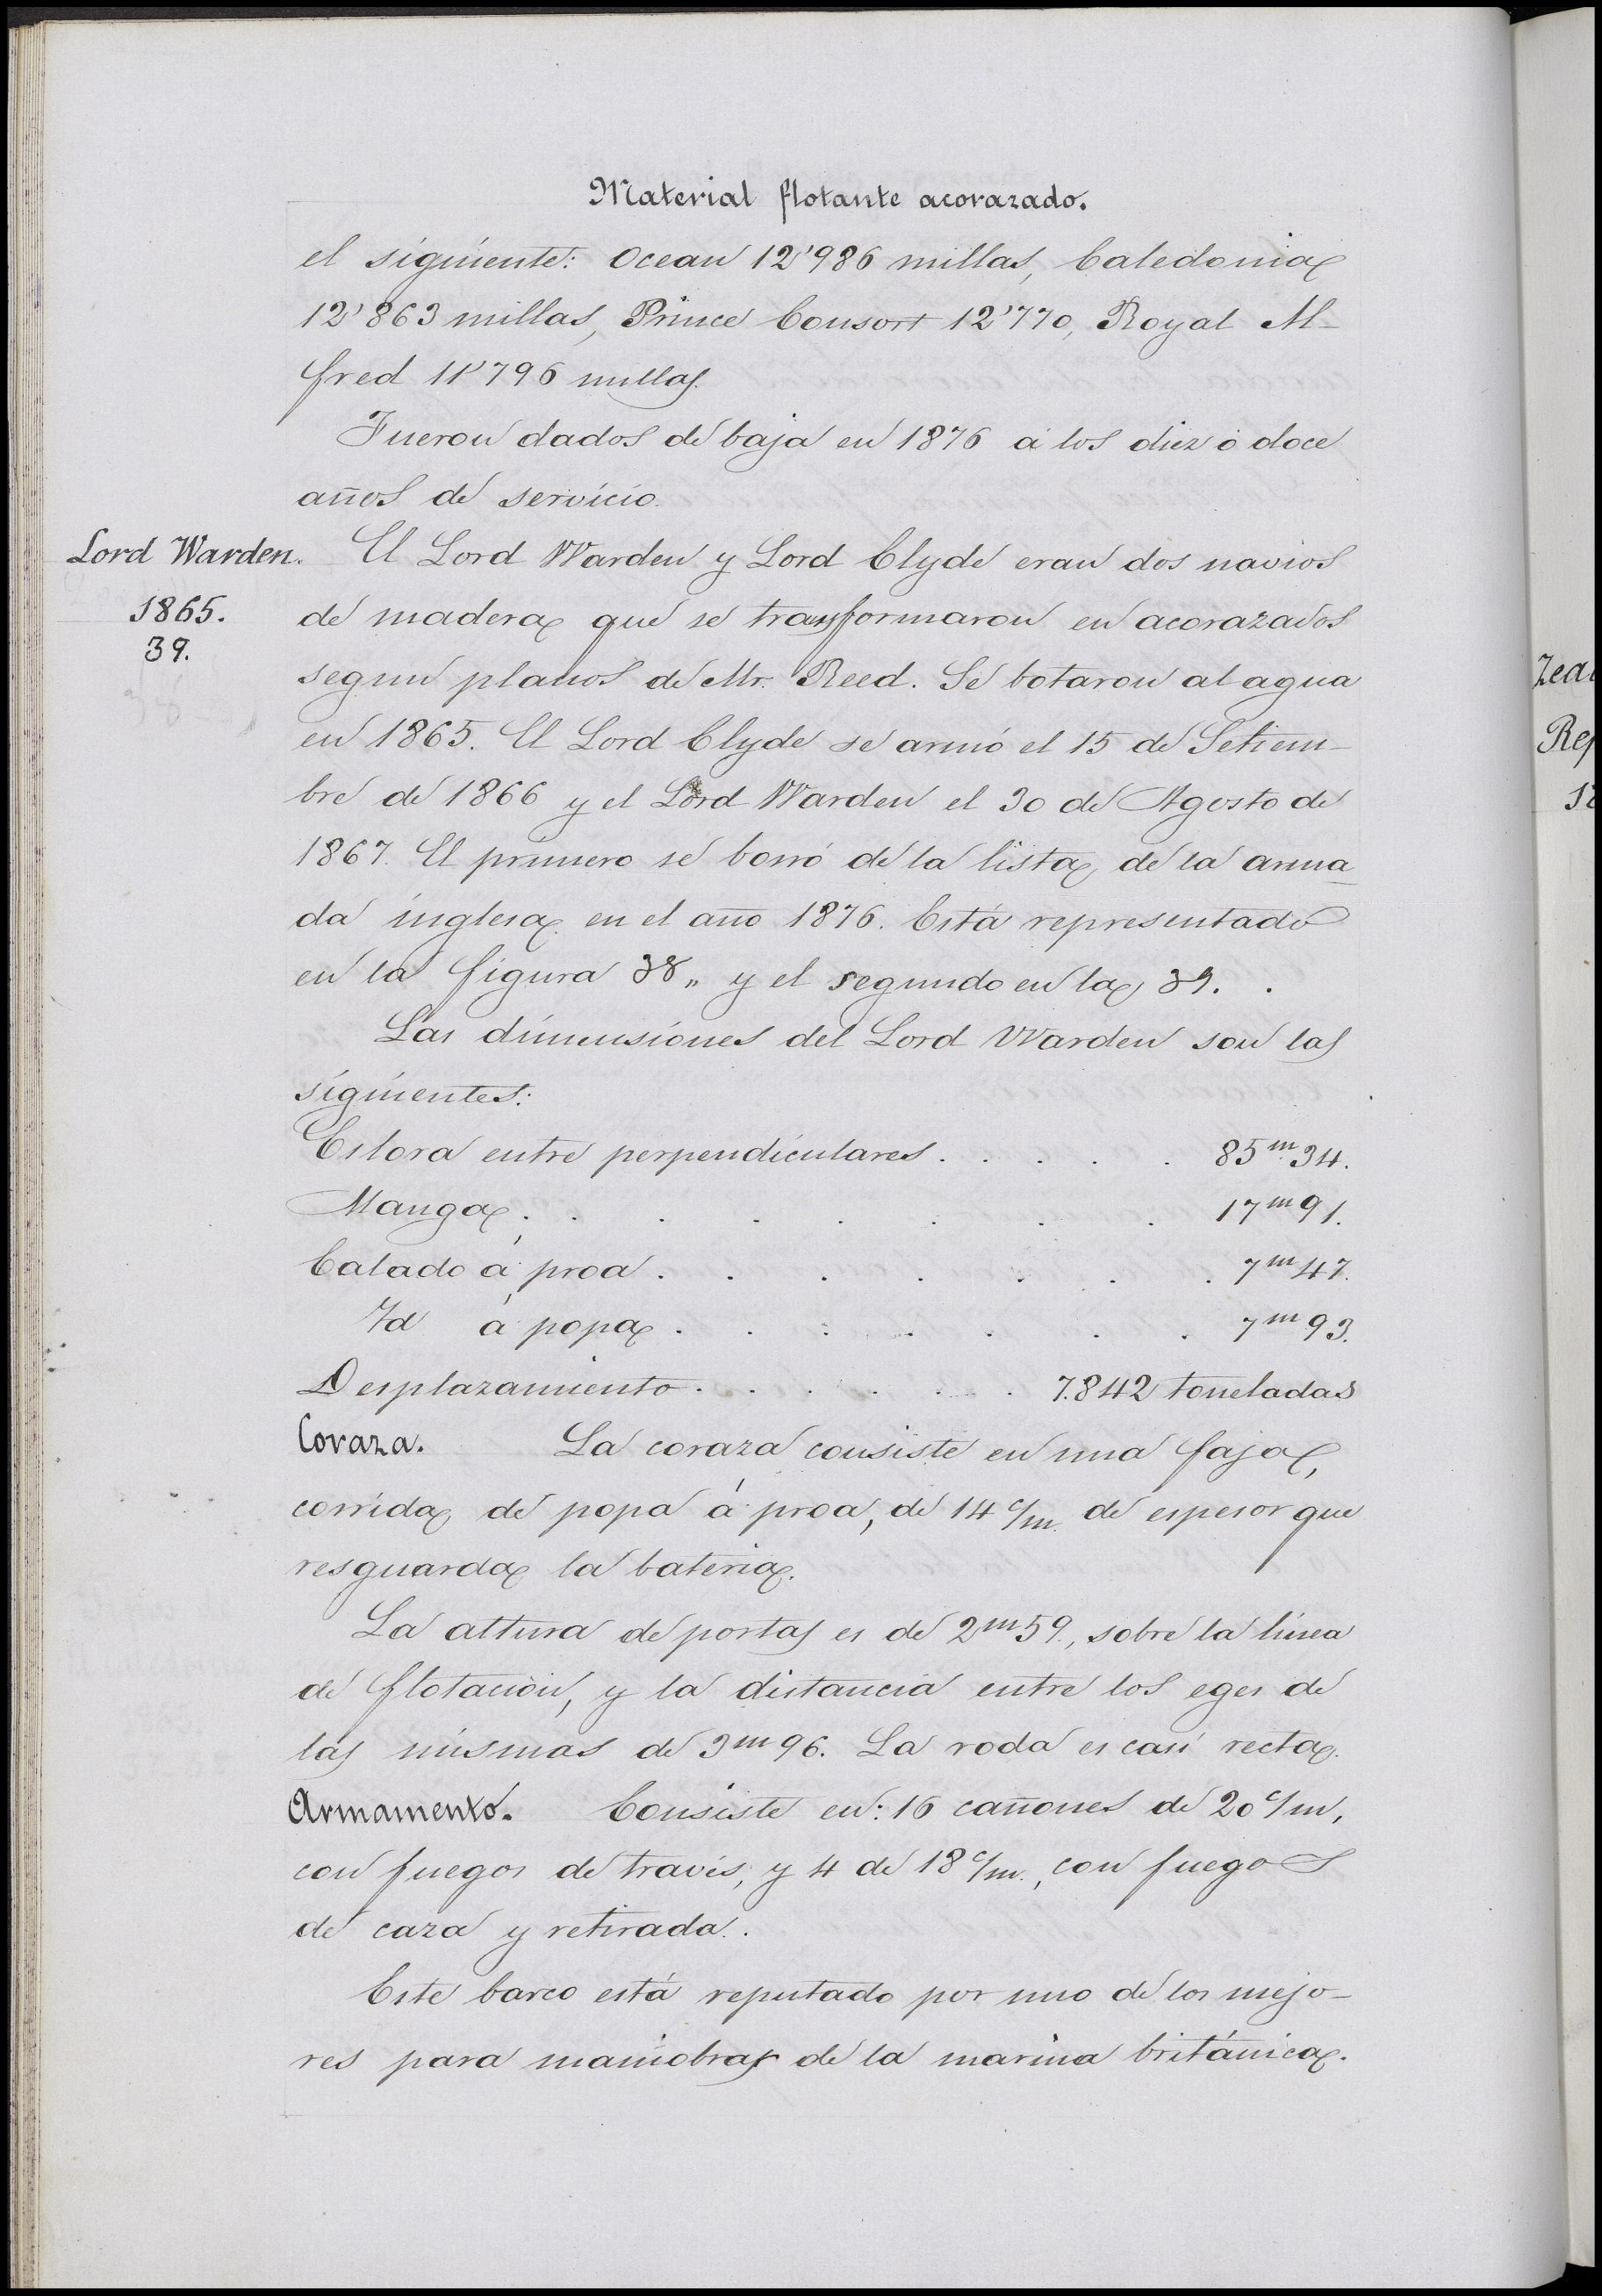 Material flotante acorazado.
el siguiente: Ocean 12'986 millas, Caledonia
12'863 millas, Prince Consort 12'770, Royal Al-
fred 11'796 millas.
Fueron dados de baja en 1876 á los diez ó doce
años de servicio.
Lord Warden.
1865.
39.
El Lord Warden y Lord Clyde eran dos navios
de madera que se transformaron en acorazados
segun planos de Mr. Reed. Se botaron al agua
en 1865. El Lord Clyde se armó el 15 de Setiem-
bre de 1866 y el Lord Warden el 30 de Agosto de
1867. El primero se borró de la lista de la arma-
da inglesa en el año 1876. Está representado
en la figura 38„ y el segundo en la 39.
Las dimensiones del Lord Warden son las
siguientes:
Eslora entre perpendiculares . . . . 85m34.
Manga . . . . . . . . 17m91.
Calado á proa . . . . . . . 7m47.
Id á popa . . . . . . . 7m93.
Desplazamiento . . . . . 7.842 toneladas
Coraza. La coraza consiste en una faja,
corrida de popa á proa, de 14 c/m. de espesor que
resguarda la bateria.
La altura de portas es de 2m59., sobre la línea
de flotación, y la distancia entre los eges de
las mismas de 3m96. La roda es casi recta.
Armamento. Consiste en: 16 cañones de 20 c/m,
con fuegos de través, y 4 de 18 c/m., con fuegos
de caza y retirada.
Este barco está reputado por uno de los mejo-
res para maniobras de la marina británica.